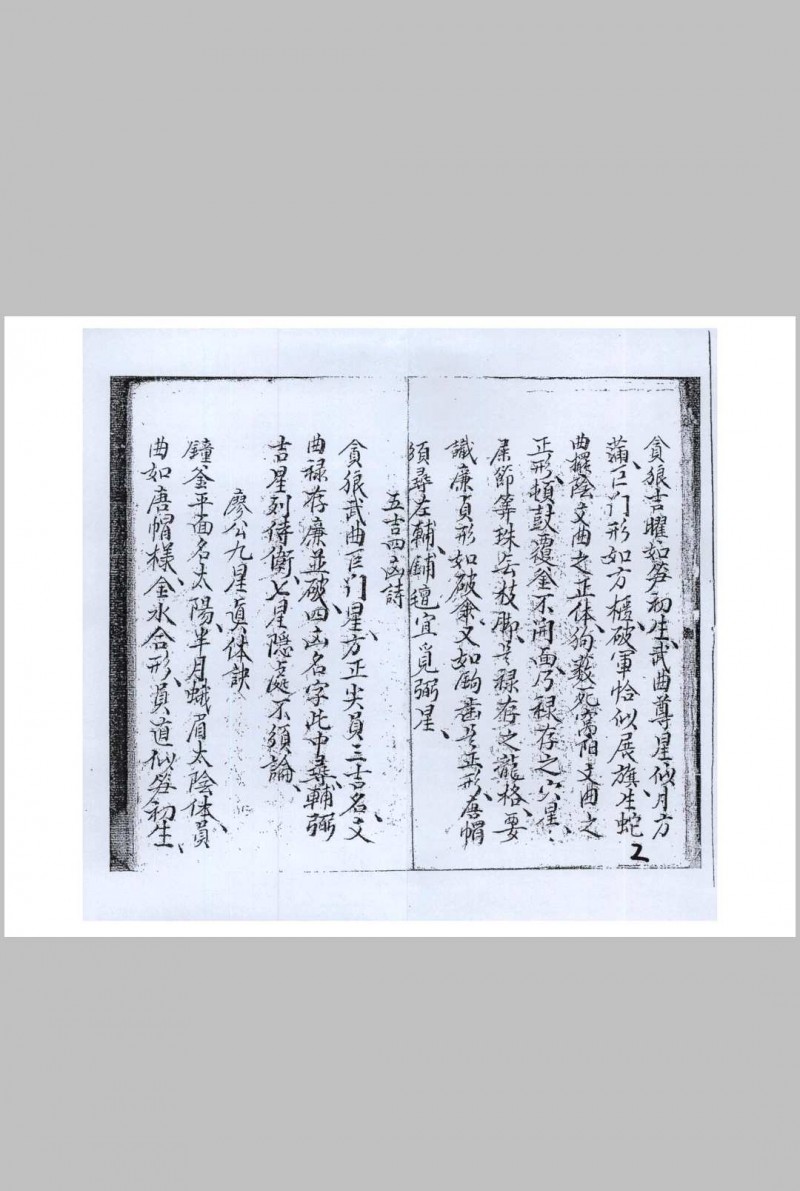 貪狼吉曜如笋初生、武曲尊星似月方
蒲、巨门形如方櫃、破軍恰似展旗、生蛇
曲擺蔭文曲之正体、狗薮死窩陷文曲之
正形、頓鼓覆釜不開面、乃禄存之穴星、
犀節等珠云枝脚、是禄存之龍格、要
識廉貞形如破傘、又如駒歯是正形、唐帽
須尋左輔、鋪氊宜覓弼星、
五吉四凶詩
貪狼武曲巨门星、方正尖員三吉名、文
曲禄存廉並破、四凶名字此中尋、輔弼
吉星列侍衛、七星隠處不須論、
廖公九星真体訣
鐘釜平面名太陽、半月蛾眉太陰体、員
曲如唐帽様、金水合形、員直似笋初生、
2